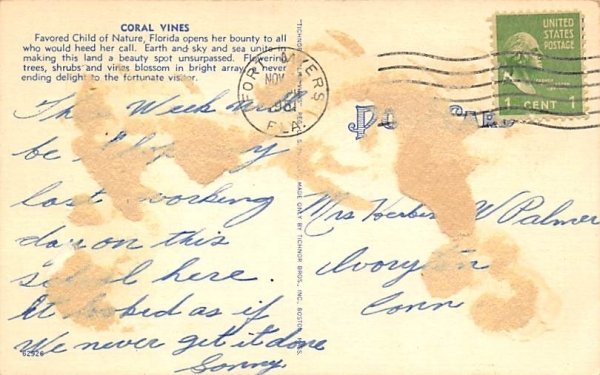 CORAL VINES
Favored Child of Nature, Florida opens her bounty to all
who would heed her call. Earth and sky and sea unite in
making this land a beauty spot unsurpassed. Flowering
trees, shrubs and vines blossom in bright array, a never
ending delight to the fortunate visitor.
FORT MYERS
NOV
FLA
UNITED
STATES
POSTAGE
1 CENT 1
Week
be
last working
day on this
here.
It looked as if
We never get it done
Sonny.
Mrs Herber W Palmer
Ivoryton
Conn
MADE ONLY BY TICHNOR BROS., INC., BOSTON, MASS.
62926